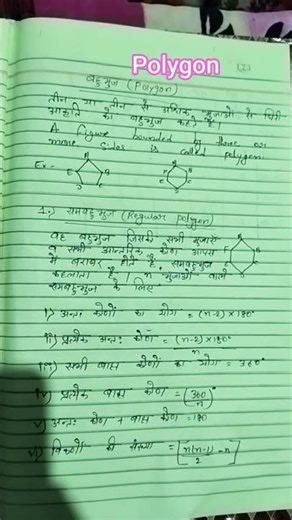 Polygon
बहुभुज (Polygon)
तीन या तीन से अधिक भुजाओं से घिरी
आकृति को बहुभुज कहते हैं।
A figure bounded by three or
more sides is called polygon.
Ex-
1.) समबहुभुज (Regular polygon)
वह बहुभुज जिसकी सभी भुजाएँ
व सभी आन्तरिक कोण आपस
में बराबर होते हैं, समबहुभुज
कहलाता है। n भुजाओं वाले
समबहुभुज के लिए
i) अन्तः कोणों का योग = (n-2)×180°
ii) प्रत्येक अन्तः कोण = (n-2)×180°/n
iii) सभी बाह्य कोणों का योग = 360°
iv) प्रत्येक बाह्य कोण = (360/n)°
v) अन्तः कोण + बाह्य कोण = 180
vi) विकर्णों की संख्या = [n(n-1)/2 - n]